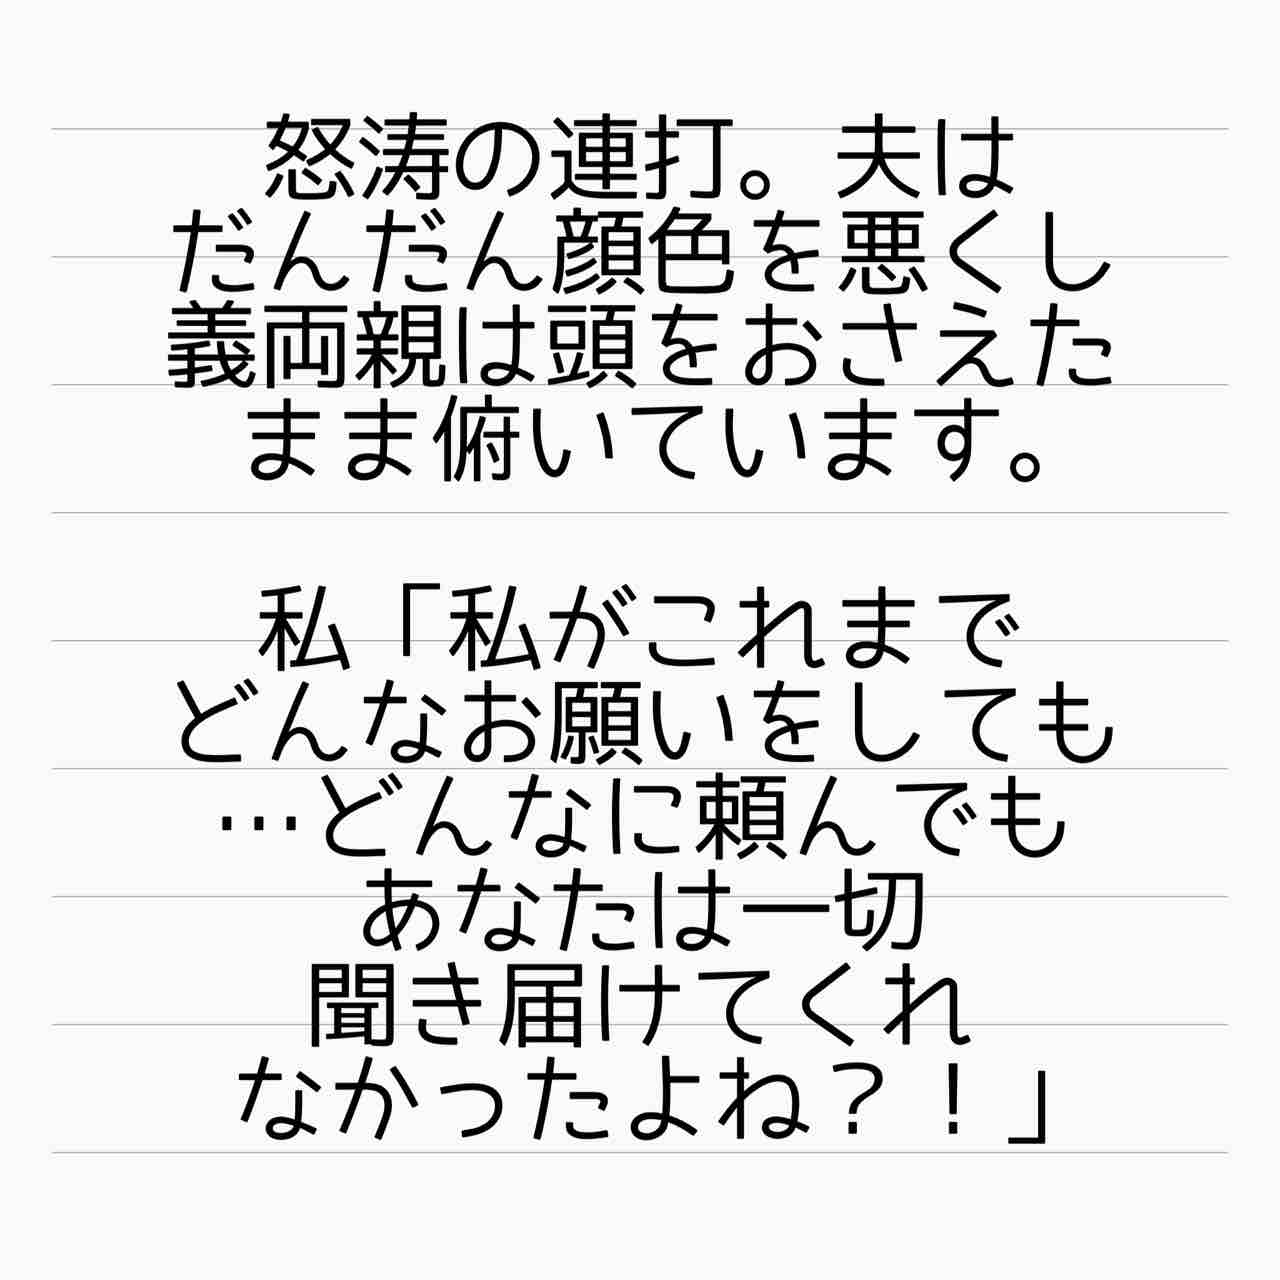 怒涛の連打。夫は
だんだん顔色を悪くし
義両親は頭をおさえた
まま俯いています。
私「私がこれまで
どんなお願いをしても
…どんなに頼んでも
あなたは一切
聞き届けてくれ
なかったよね？！」